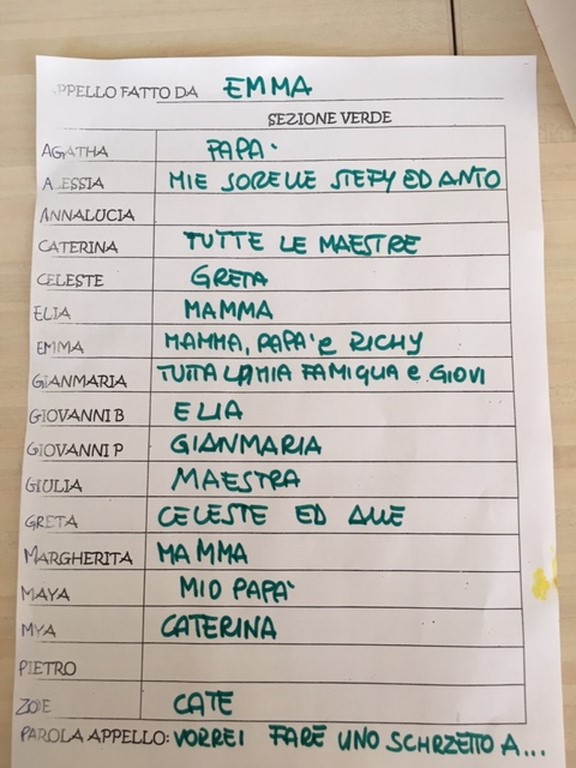 APPELLO FATTO DA EMMA
SEZIONE VERDE
AGATHA PAPA'
ALESSIA MIE SORELLE STEFY ED ANTO
ANNALUCIA
CATERINA TUTTE LE MAESTRE
CELESTE GRETA
ELIA MAMMA
EMMA MAMMA, PAPA' e RICHY
GIANMARIA TUTTA LA MIA FAMIGLIA e GIOVI
GIOVANNI B ELIA
GIOVANNI P GIANMARIA
GIULIA MAESTRA
GRETA CELESTE ED ALLE
MARGHERITA MAMMA
MAYA MIO PAPA'
MYA CATERINA
PIETRO
ZOE CATE
PAROLA APPELLO: VORREI FARE UNO SCHRZETTO A...